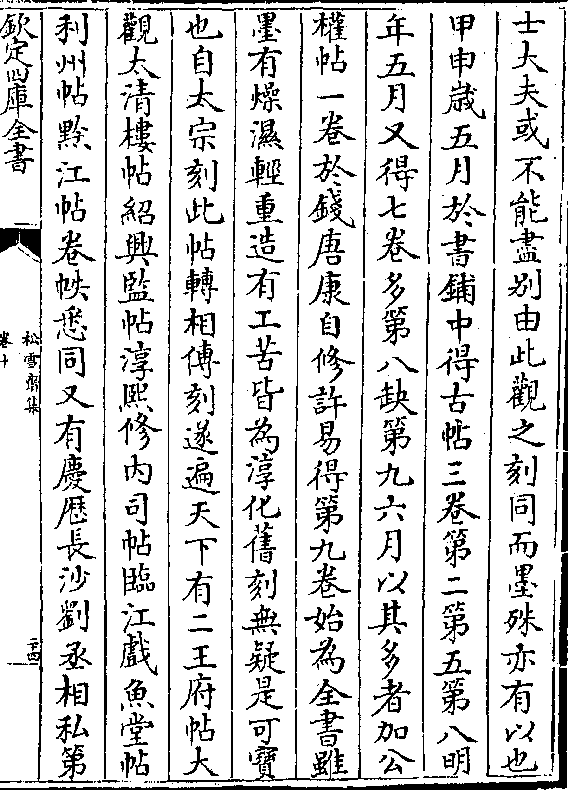 士大夫或不能盡别由此觀之刻同而墨殊亦有以也
甲申歲五月於書鋪中得古帖三卷第二第五第八明
年五月又得七卷多第八缺第九六月以其多者加公
權帖一卷於錢唐康自修許易得第九卷始為全書雖
墨有燥濕輕重造有工苦皆為淳化舊刻無疑是可寶
也自太宗刻此帖轉相傳刻遂遍天下有二王府帖大
觀太清樓帖紹興監帖淳熙修内司帖臨江戲魚堂帖
利州帖黔江帖卷帙悉同又有慶歴長沙劉丞相私第
欽定四庫全書
松雪齋集
卷十
二十四